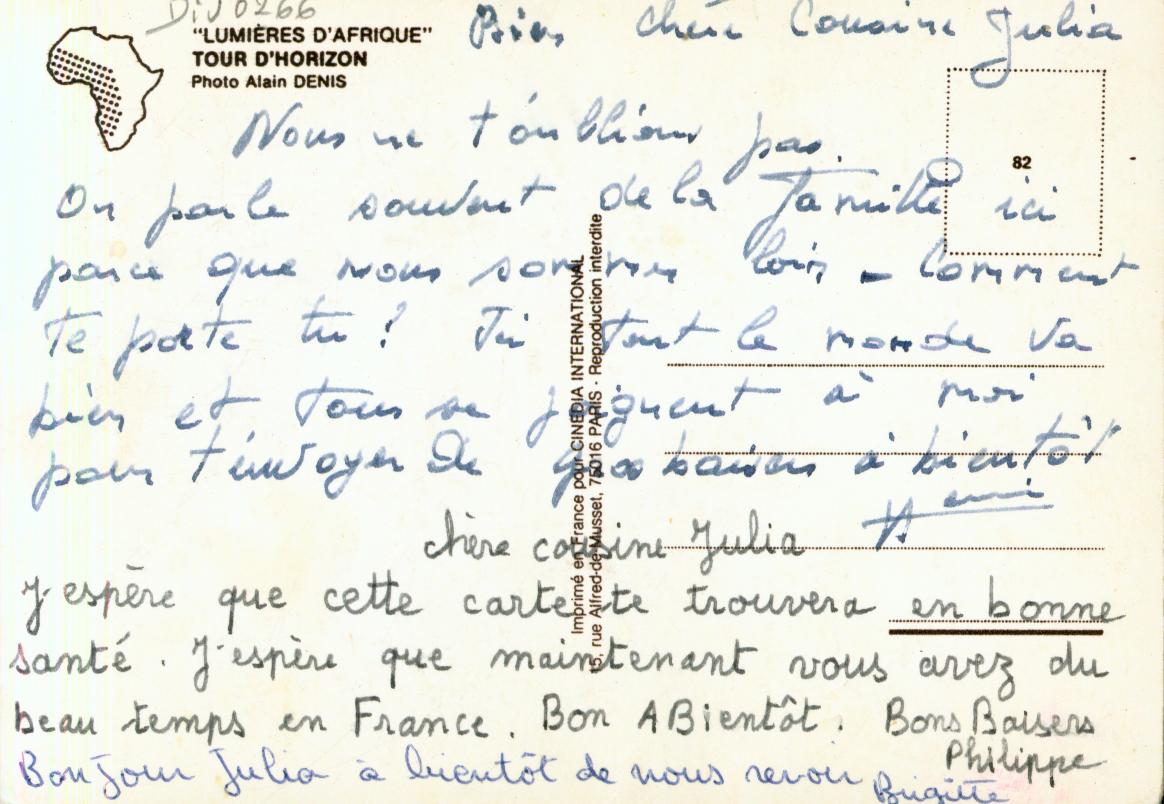 DIV0266
"LUMIÈRES D'AFRIQUE"
TOUR D'HORIZON
Photo Alain DENIS
82
Bien chère Cousine Julia
Nous ne t'oublions pas.
On parle souvent de la famille ici
parce que nous sommes loin - Comment
te porte tu ? Ici tout le monde va
bien et tous se joignent à moi
pour t'envoyer de gros baisers à bientôt
chère cousine Julia
J'espère que cette carte te trouvera en bonne
santé. J'espère que maintenant vous avez du
beau temps en France. Bon A Bientôt. Bons Baisers
Philippe
BonJour Julia à bientôt de nous revoir
Brigitte
Imprimé en France pour CINÉDIA INTERNATIONAL
15, rue Alfred-de-Musset, 75016 PARIS - Reproduction interdite